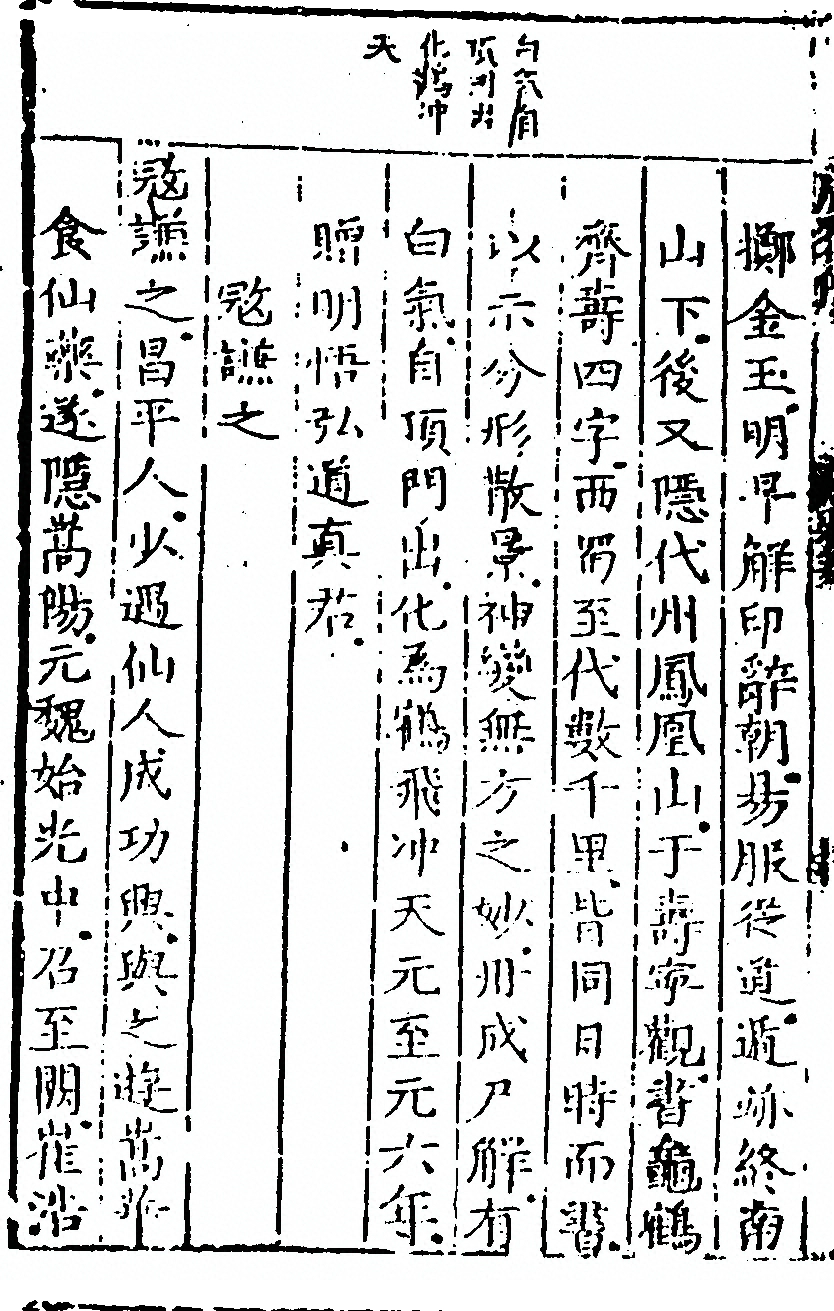 白氣自
頂門出
化鶴冲
天
擲金玉明早解印辭朝易服從道遁跡終南
山下後又隱代州鳳凰山于壽寧觀書龜鶴
齊壽四字西蜀至代數千里皆同日時而書
以示分形散景神變無方之妙丹成尸解有
白氣自頂門出化為鶴飛冲天元至元六年
贈明悟弘道真君
寇謙之
寇謙之昌平人少遇仙人成功興與之遊嵩華
食仙藥遂隱嵩陽元魏始光中召至闕崔浩